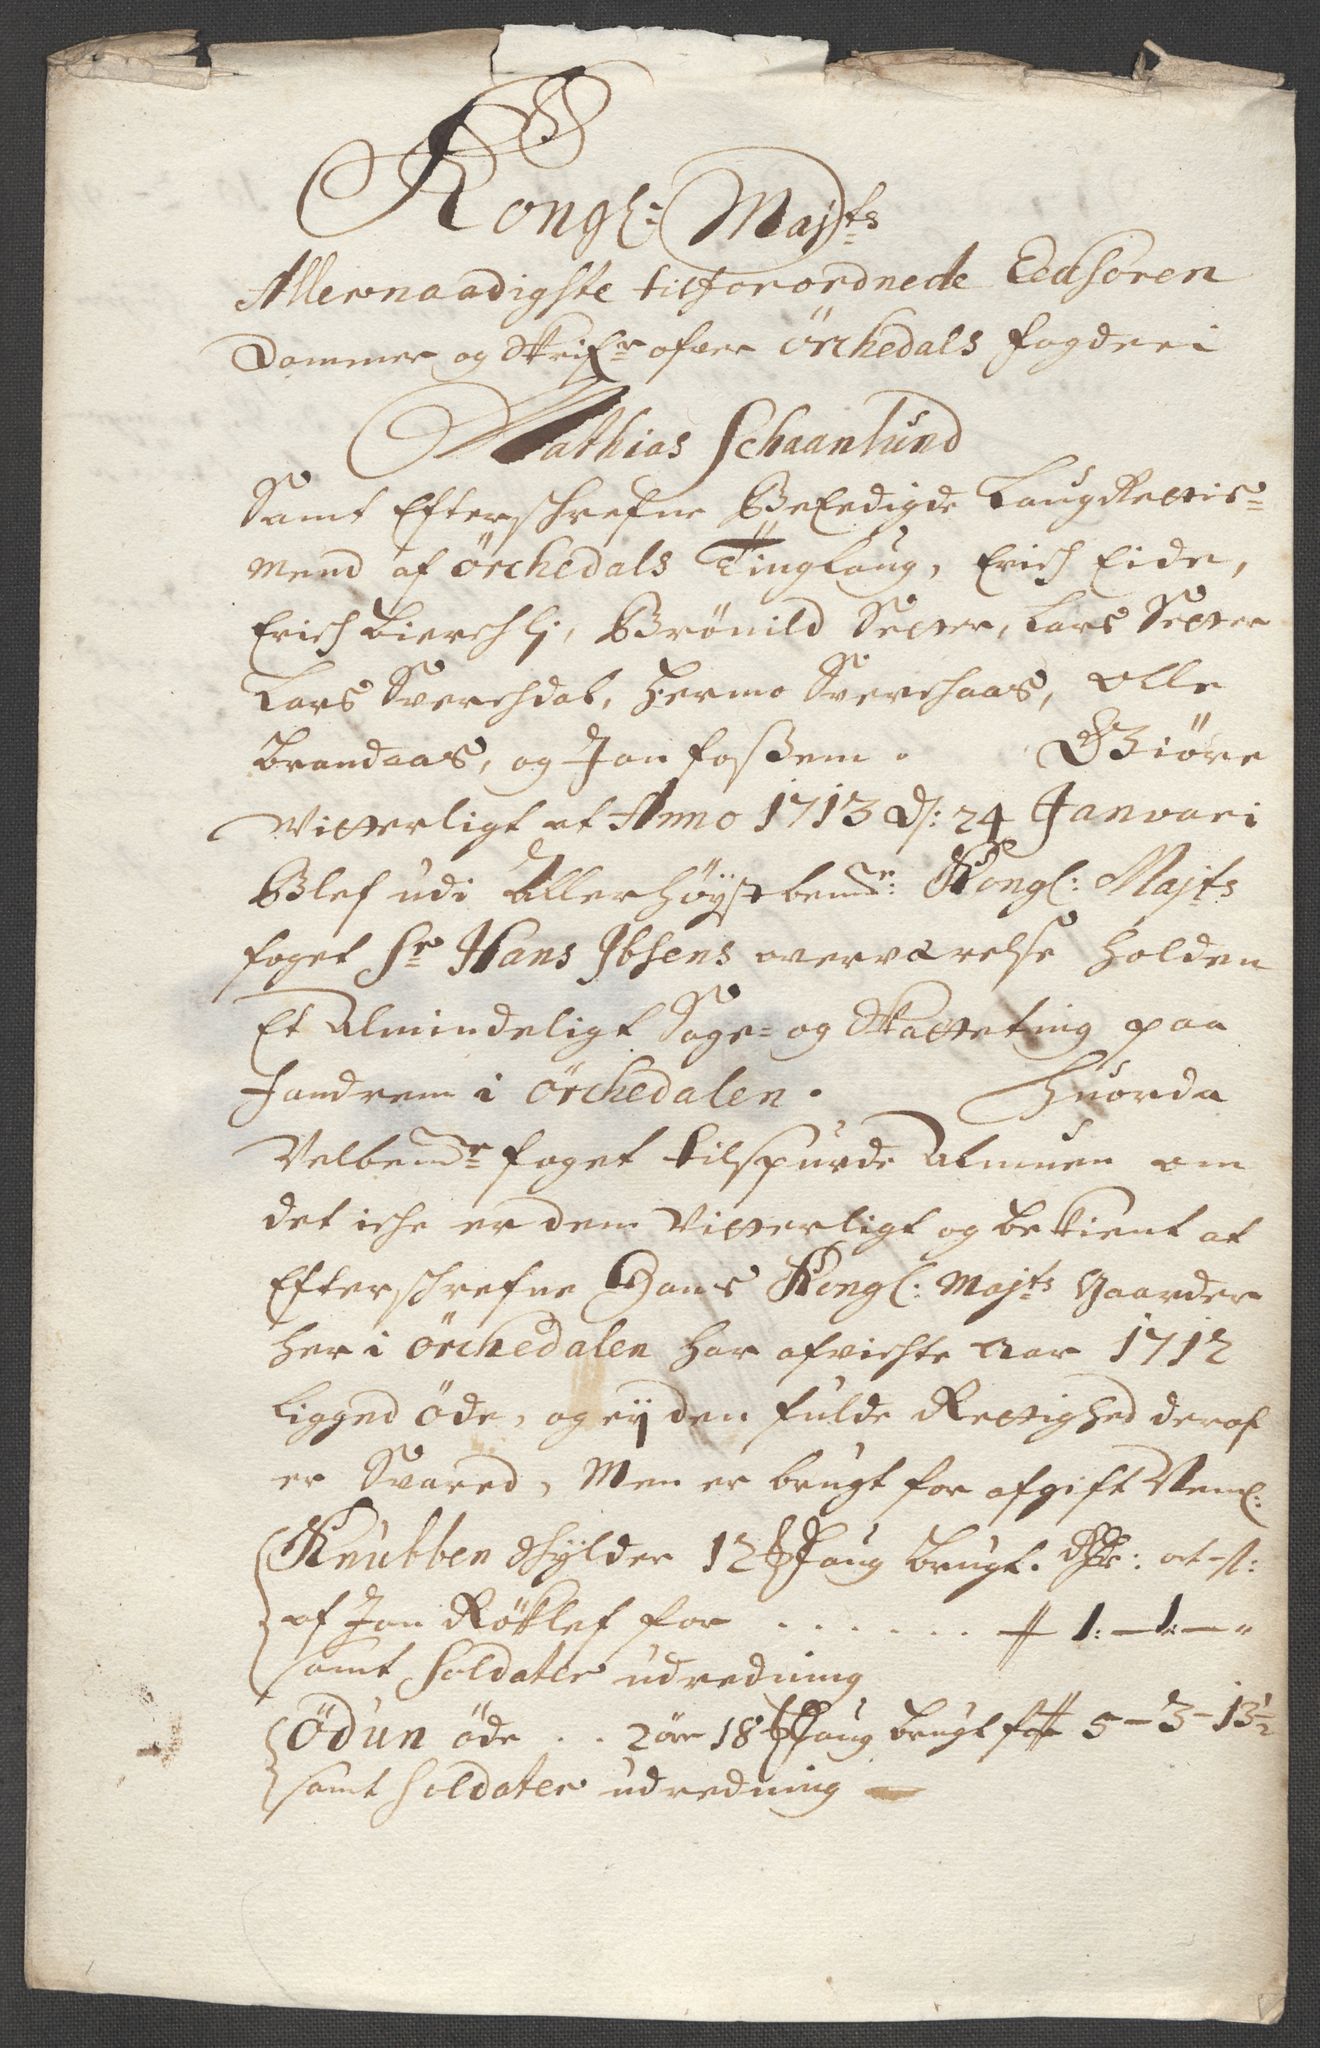 Kongl: Majts
Allernaadigste tilforordnede Eedsoren
Dommer og Skrifr ofuer Örchedals fogderi
Mathias Schaanlund
Samt Efterschrefne BeEedigde LaugRettis=
mend af Örchedals Tinglaug, Erich Eide,
Erich Bierchli, Brönild Setter, Lars Setter
Lars Sverchdal, Hermo Sverchaas, Olle
Brandaas, og Jon Foßem. Giöre
Vitterligt at Anno 1713 d: 24 Janvari
Blef udi Allerhöystbemte: Kongl: Majts
foget Sr Hans Ibsens overværelse holden
Et Almindeligt Sage= og Skatteting paa
Fandrem i Örchedalen. Huorda
Velbemte foget tilspurde Almuen om
det iche er dem Vitterligt og bekient at
Efterschrefne Hans Kongl: Majts Gaarder
her i Örchedalen har afvichte Aar 1712
Ligged öde, og eij den fulde Rettighed deraf
er Svared, Men er brugt for afgift Neml:
Knubben Schylder 12 Laug brugt. Rdr: ort s:
af Jon Röklef for . . . . . . 1: — 1: — "
samt Soldater udredning
Ödun öde . . 2 öre 18 Laug brugt for 5 – 3 – 13½
samt Soldater udredning —